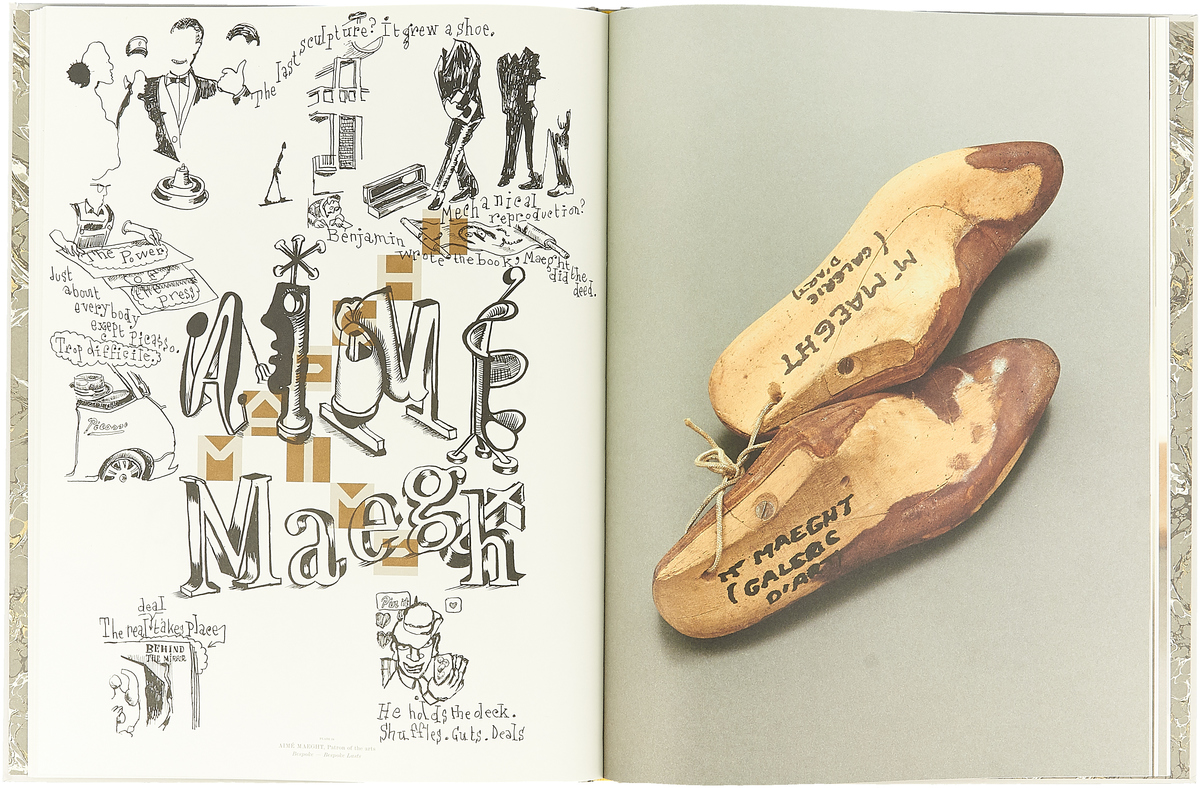 The last sculpture? It grew a shoe.
Mechanical
reproduction?
Benjamin
wrote the book, Maeght
did the
deed.
The Power
Press
Just
about
everybody
exept Picasso.
Trop difficile.
Picasso
AIMÉ
Maeght
deal
The real takes place
BEHIND
THE MIRROR
He holds the deck.
Shuffles. Cuts. Deals
AIMÉ MAEGHT, Patron of the arts
Mr MAEGHT
(GALERIE
D'ART)
Mr MAEGHT
(GALERIE
D'ART